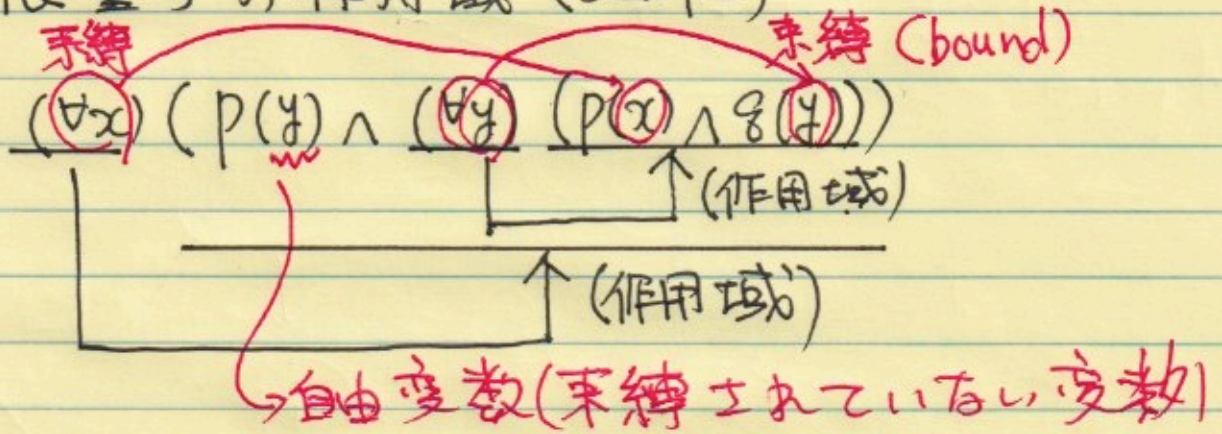 束縛 束縛 (bound)
(∀x) (p(y) ∧ (∀y) (p(x) ∧ q(y)))
(作用域)
(作用域)
自由変数(束縛されていない変数)